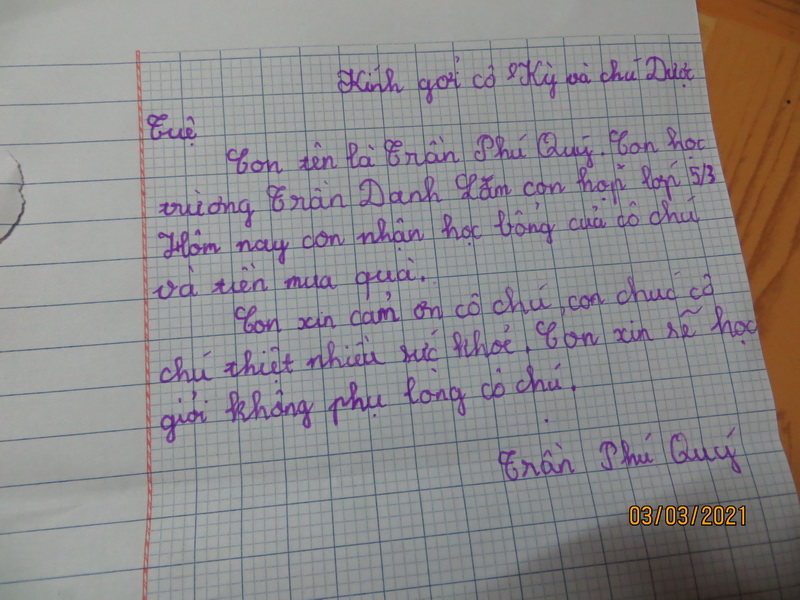 Kính gởi cô Kỳ và chú Dược
Tuệ
Con tên là Trần Phú Quý. Con học
trường Trần Danh Lâm con học lớp 5/3
Hôm nay con nhận học bổng của cô chú
và tiền mua quà.
Con xin cảm ơn cô chú, con chúc cô
chú thiệt nhiều sức khoẻ. Con xin sẽ học
giỏi không phụ lòng cô chú.
Trần Phú Quý
03/03/2021